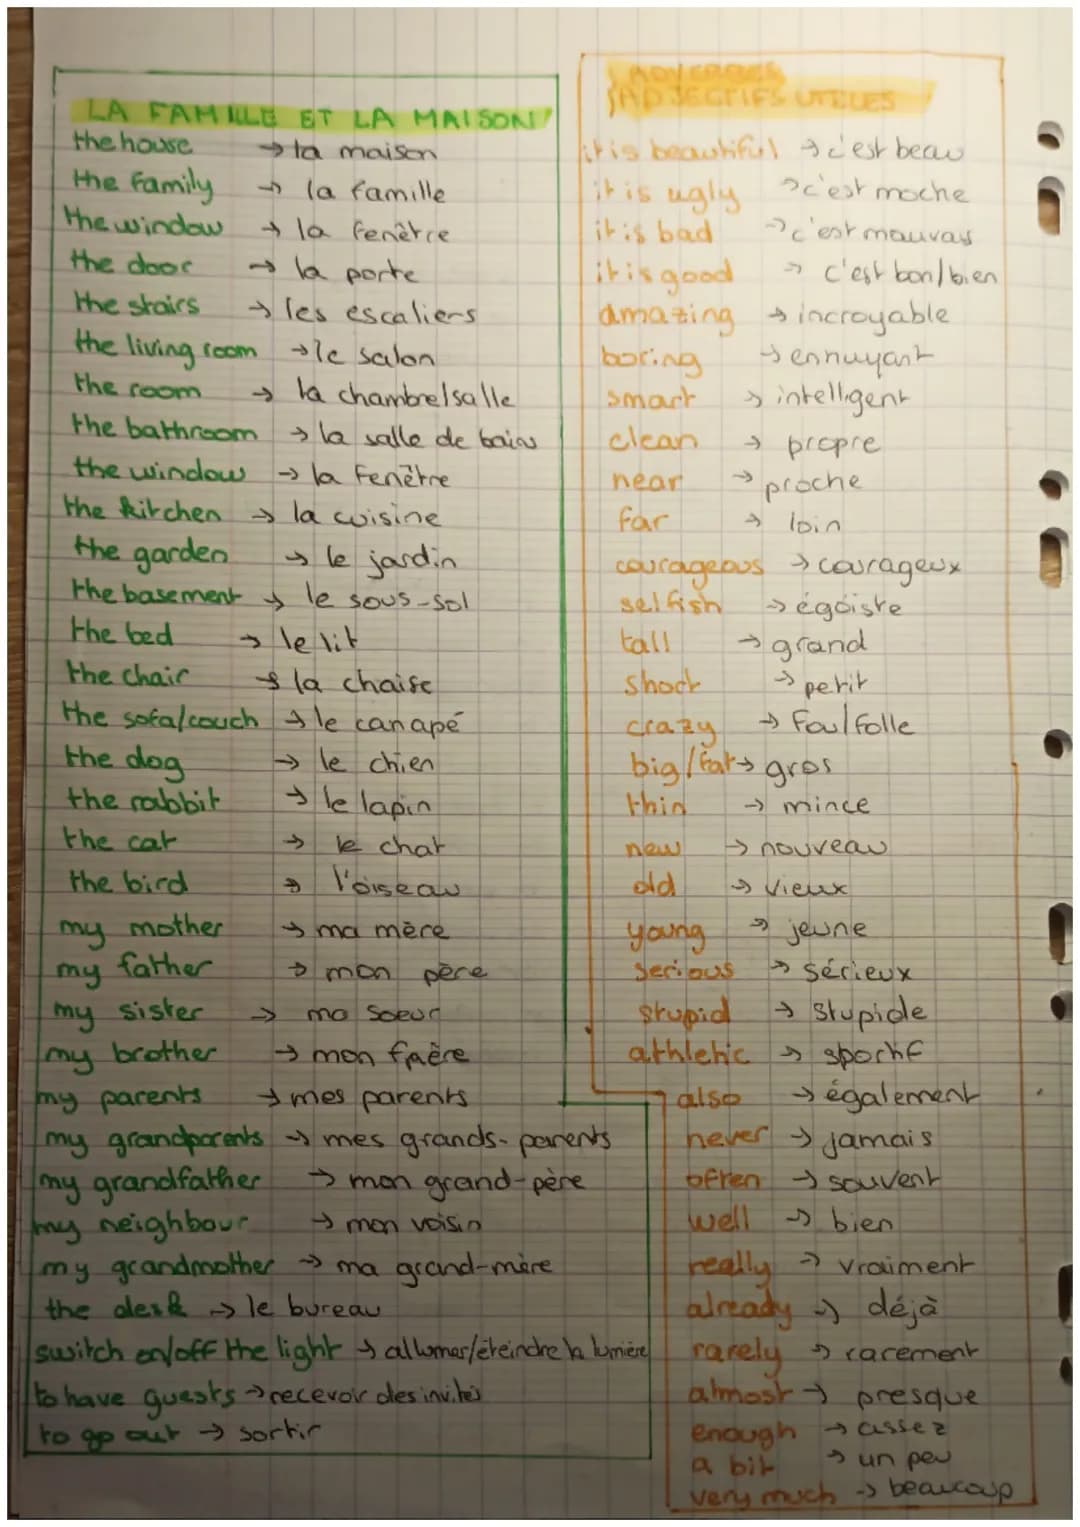 LA FAMILLE ET LA MAISON
the house → la maison
the family → la famille
the window → la fenêtre
the door → la porte
the stairs → les escaliers
the living room → le salon
the room → la chambre/salle
the bathroom → la salle de bains
the window → la fenêtre
the kitchen → la cuisine
the garden → le jardin
the basement → le sous-sol
the bed → le lit
the chair → la chaise
the sofa/couch → le canapé
the dog → le chien
the rabbit → le lapin
the cat → le chat
the bird → l'oiseau
my mother → ma mère
my father → mon père
my sister → ma soeur
my brother → mon frère
my parents → mes parents
my grandparents → mes grands-parents
my grandfather → mon grand-père
my neighbour → mon voisin
my grandmother → ma grand-mère
the desk → le bureau
switch on/off the light → allumer/éteindre la lumière
to have guests → recevoir des invités
to go out → sortir
ADVERBES
ADJECTIFS UTILES
it is beautiful → c'est beau
it is ugly → c'est moche
it is bad → c'est mauvais
it is good → c'est bon/bien
amazing → incroyable
boring → ennuyant
smart → intelligent
clean → propre
near → proche
far → loin
courageous → courageux
selfish → égoiste
tall → grand
short → petit
crazy → fou/folle
big/fat → gros
thin → mince
new → nouveau
old → vieux
young → jeune
serious → sérieux
stupid → stupide
athletic → sportif
also → également
never → jamais
often → souvent
well → bien
really → vraiment
already → déjà
rarely → rarement
almost → presque
enough → assez
a bit → un peu
very much → beaucoup